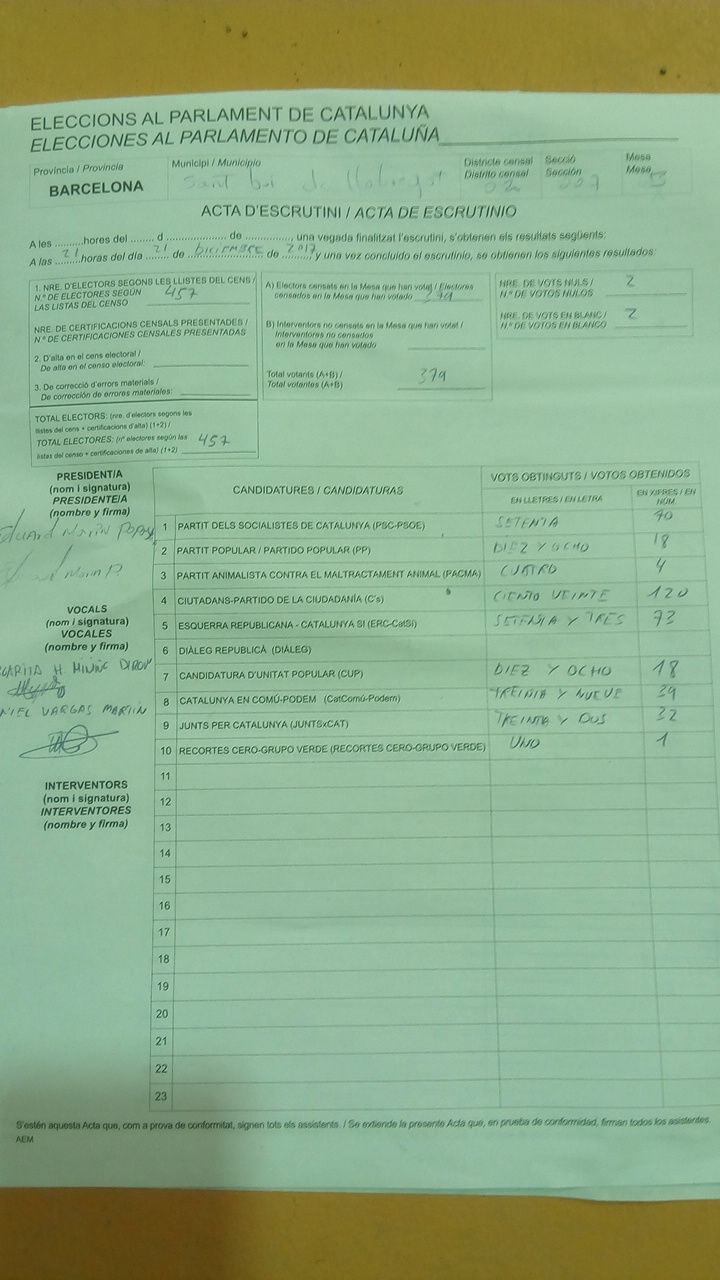 ELECCIONS AL PARLAMENT DE CATALUNYA
ELECCIONES AL PARLAMENTO DE CATALUÑA
Província / Provincia
BARCELONA
Municipi / Municipio
Sant boi de llobregat
Districte censal
Distrito censal
02
Secció
Sección
007
Mesa
Mesa
B
ACTA D'ESCRUTINI / ACTA DE ESCRUTINIO
A les ..........hores del ........ d ..................... de ..............., una vegada finalitzat l'escrutini, s'obtenen els resultats següents:
A las 21 horas del día 21 de DICIEMBRE de 2017 y una vez concluido el escrutinio, se obtienen los siguientes resultados:
1. NRE. D'ELECTORS SEGONS LES LLISTES DEL CENS /
N.º DE ELECTORES SEGÚN
LAS LISTAS DEL CENSO 457
NRE. DE CERTIFICACIONS CENSALS PRESENTADES /
N.º DE CERTIFICACIONES CENSALES PRESENTADAS
2. D'alta en el cens electoral /
De alta en el censo electoral:
3. De correcció d'errors materials /
De corrección de errores materiales:
TOTAL ELECTORS: (nre. d'electors segons les
llistes del cens + certificacions d'alta) (1+2) /
TOTAL ELECTORES: (nº electores según las
listas del censo + certificaciones de alta) (1+2) 457
A) Electors censats en la Mesa que han votat / Electores
censados en la Mesa que han votado 379
B) Interventors no censats en la Mesa que han votat /
Interventores no censados
en la Mesa que han votado
Total votants (A+B) /
Total votantes (A+B) 379
NRE. DE VOTS NULS /
N.º DE VOTOS NULOS 2
NRE. DE VOTS EN BLANC /
N.º DE VOTOS EN BLANCO 2
PRESIDENT/A
(nom i signatura)
PRESIDENTE/A
(nombre y firma)
VOCALS
(nom i signatura)
VOCALES
(nombre y firma)
VARGAS MARTIN
INTERVENTORS
(nom i signatura)
INTERVENTORES
(nombre y firma)
CANDIDATURES / CANDIDATURAS
VOTS OBTINGUTS / VOTOS OBTENIDOS
EN LLETRES / EN LETRA
EN XIFRES / EN NÚM.
1 PARTIT DELS SOCIALISTES DE CATALUNYA (PSC-PSOE) SETENTA 70
2 PARTIT POPULAR / PARTIDO POPULAR (PP) DIEZ Y OCHO 18
3 PARTIT ANIMALISTA CONTRA EL MALTRACTAMENT ANIMAL (PACMA) CUATRO 4
4 CIUTADANS-PARTIDO DE LA CIUDADANÍA (C's) CIENTO VEINTE 120
5 ESQUERRA REPUBLICANA - CATALUNYA SÍ (ERC-CatSí) SETENTA Y TRES 73
6 DIÀLEG REPUBLICÀ (DIÀLEG)
7 CANDIDATURA D'UNITAT POPULAR (CUP) DIEZ Y OCHO 18
8 CATALUNYA EN COMÚ-PODEM (CatComú-Podem) TREINTA Y NUEVE 39
9 JUNTS PER CATALUNYA (JUNTSxCAT) TREINTA Y DOS 32
10 RECORTES CERO-GRUPO VERDE (RECORTES CERO-GRUPO VERDE) UNO 1
11
12
13
14
15
16
17
18
19
20
21
22
23
S'estén aquesta Acta que, com a prova de conformitat, signen tots els assistents. / Se extiende la presente Acta que, en prueba de conformidad, firman todos los asistentes.
AEM